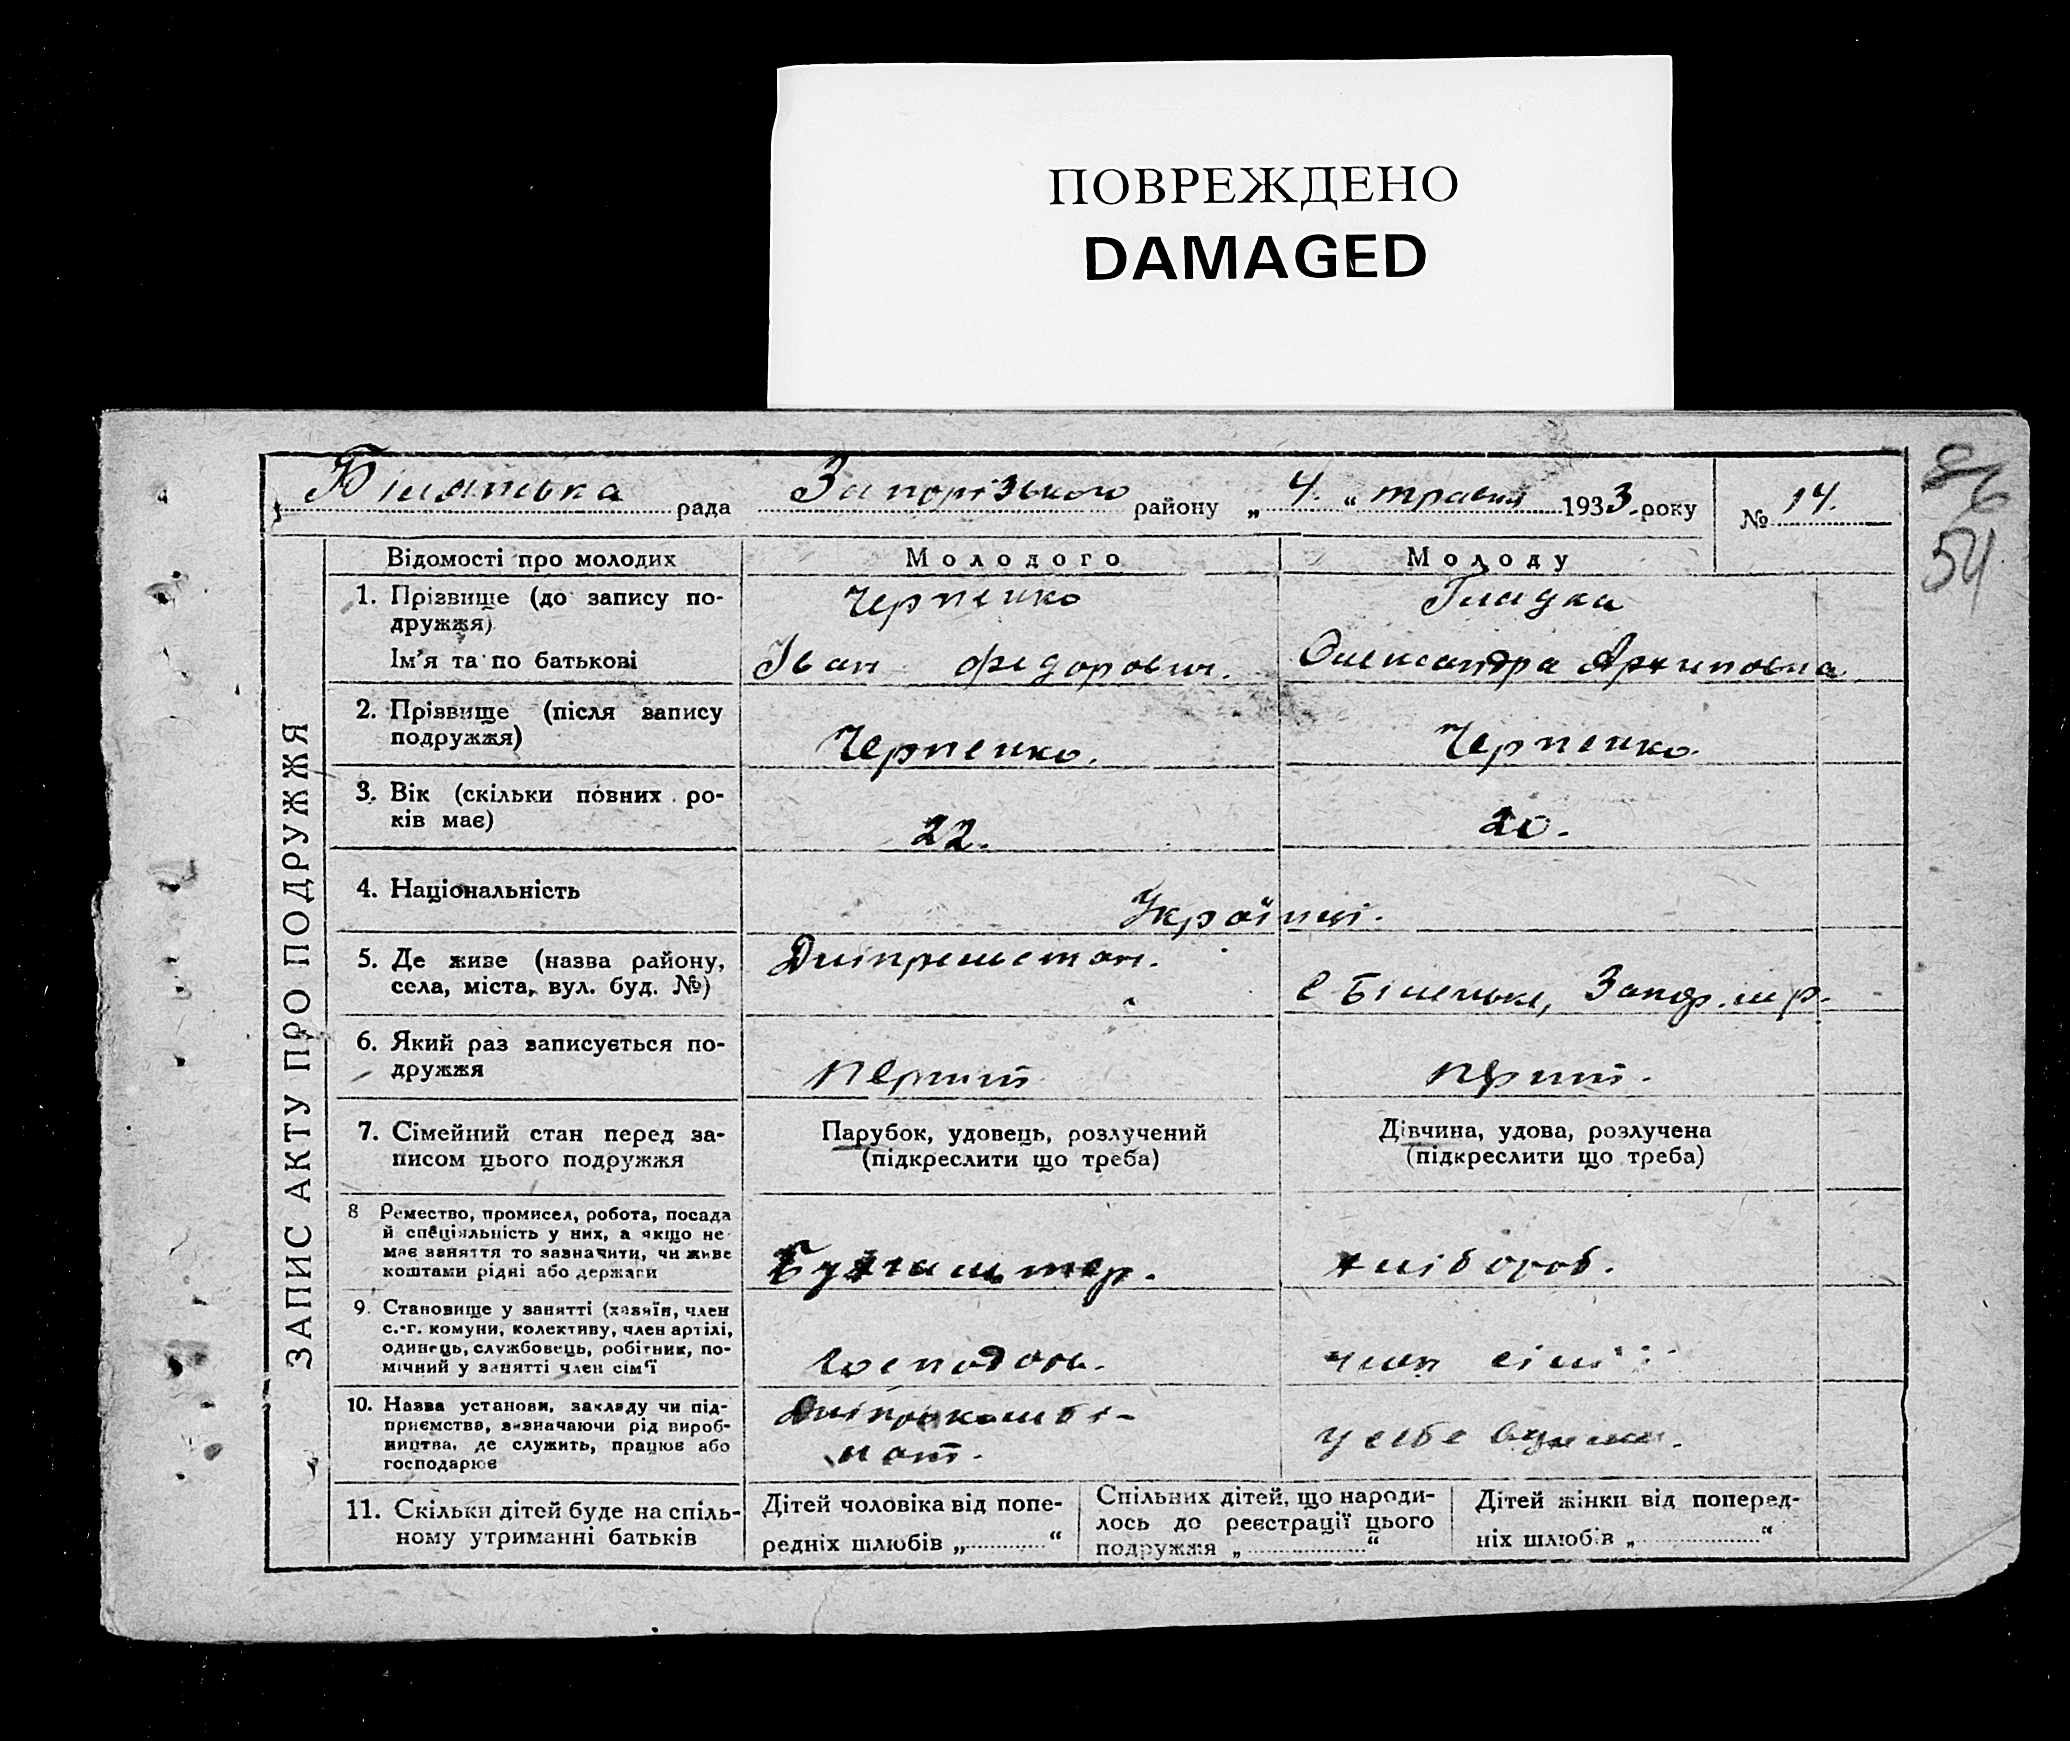 ПОВРЕЖДЕНО
DAMAGED
рада Запорізького району „ 4. “ травня 1933 року № 14.
86
54
ЗАПИС АКТУ ПРО ПОДРУЖЖЯ
Відомості про молодих Молодого Молоду
1. Прізвище (до запису по- Черпенко Гладка
дружжя)
Ім'я та по батькові Іван Федорович. Олександра Архиповна
2. Прізвище (після запису
подружжя) Черпенко. Черпенко.
3. Вік (скільки повних ро-
ків має) 22. 20.
4. Національність Українці.
5. Де живе (назва району,
села, міста, вул. буд. №) с Біленьке,
6. Який раз записується по-
дружжя перший перший.
7. Сімейний стан перед за- Парубок, удовець, розлучений Дівчина, удова, розлучена
писом цього подружжя (підкреслити що треба) (підкреслити що треба)
8 Ремество, промисел, робота, посада
й спеціяльність у них, а якщо не
має заняття то зазначити, чи живе
коштами рідні або держави Бухгальтер. хлібороб.
9. Становище у занятті (хазяїн, член
с.-г. комуни, колективу, член артілі,
одинець, службовець, робітник, по-
мічний у занятті член сім'ї член сімї
10. Назва установи, закладу чи під- Дніпрокомбі-
приємства, визначаючи рід вироб- нат.
ництва, де служить, працює або
господарює
11. Скільки дітей буде на спіль-
ному утриманні батьків
Дітей чоловіка від попе-
редніх шлюбів „ “
Спільних дітей, що народи-
лось до реєстрації цього
подружжя „ “
Дітей жінки від поперед-
ніх шлюбів „ “